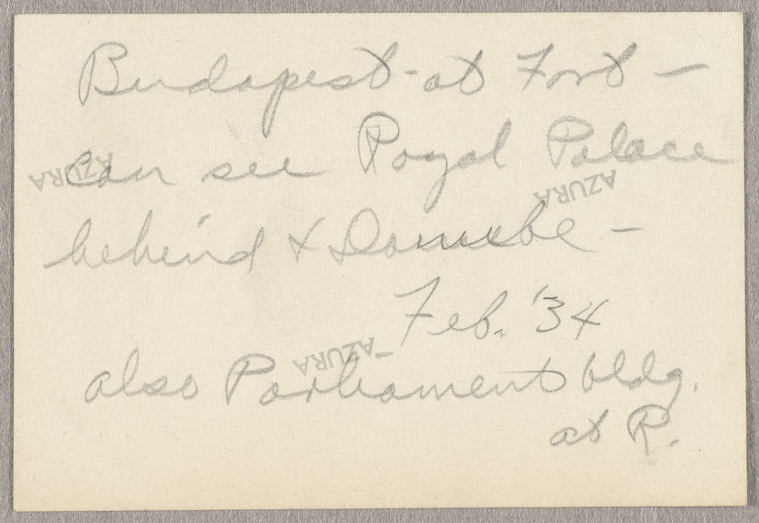 Budapest - at Fort —
can see Royal Palace
AZURA
AZURA
behind & Danube —
Feb. '34
AZURA
also Parliament bldg.
at R.